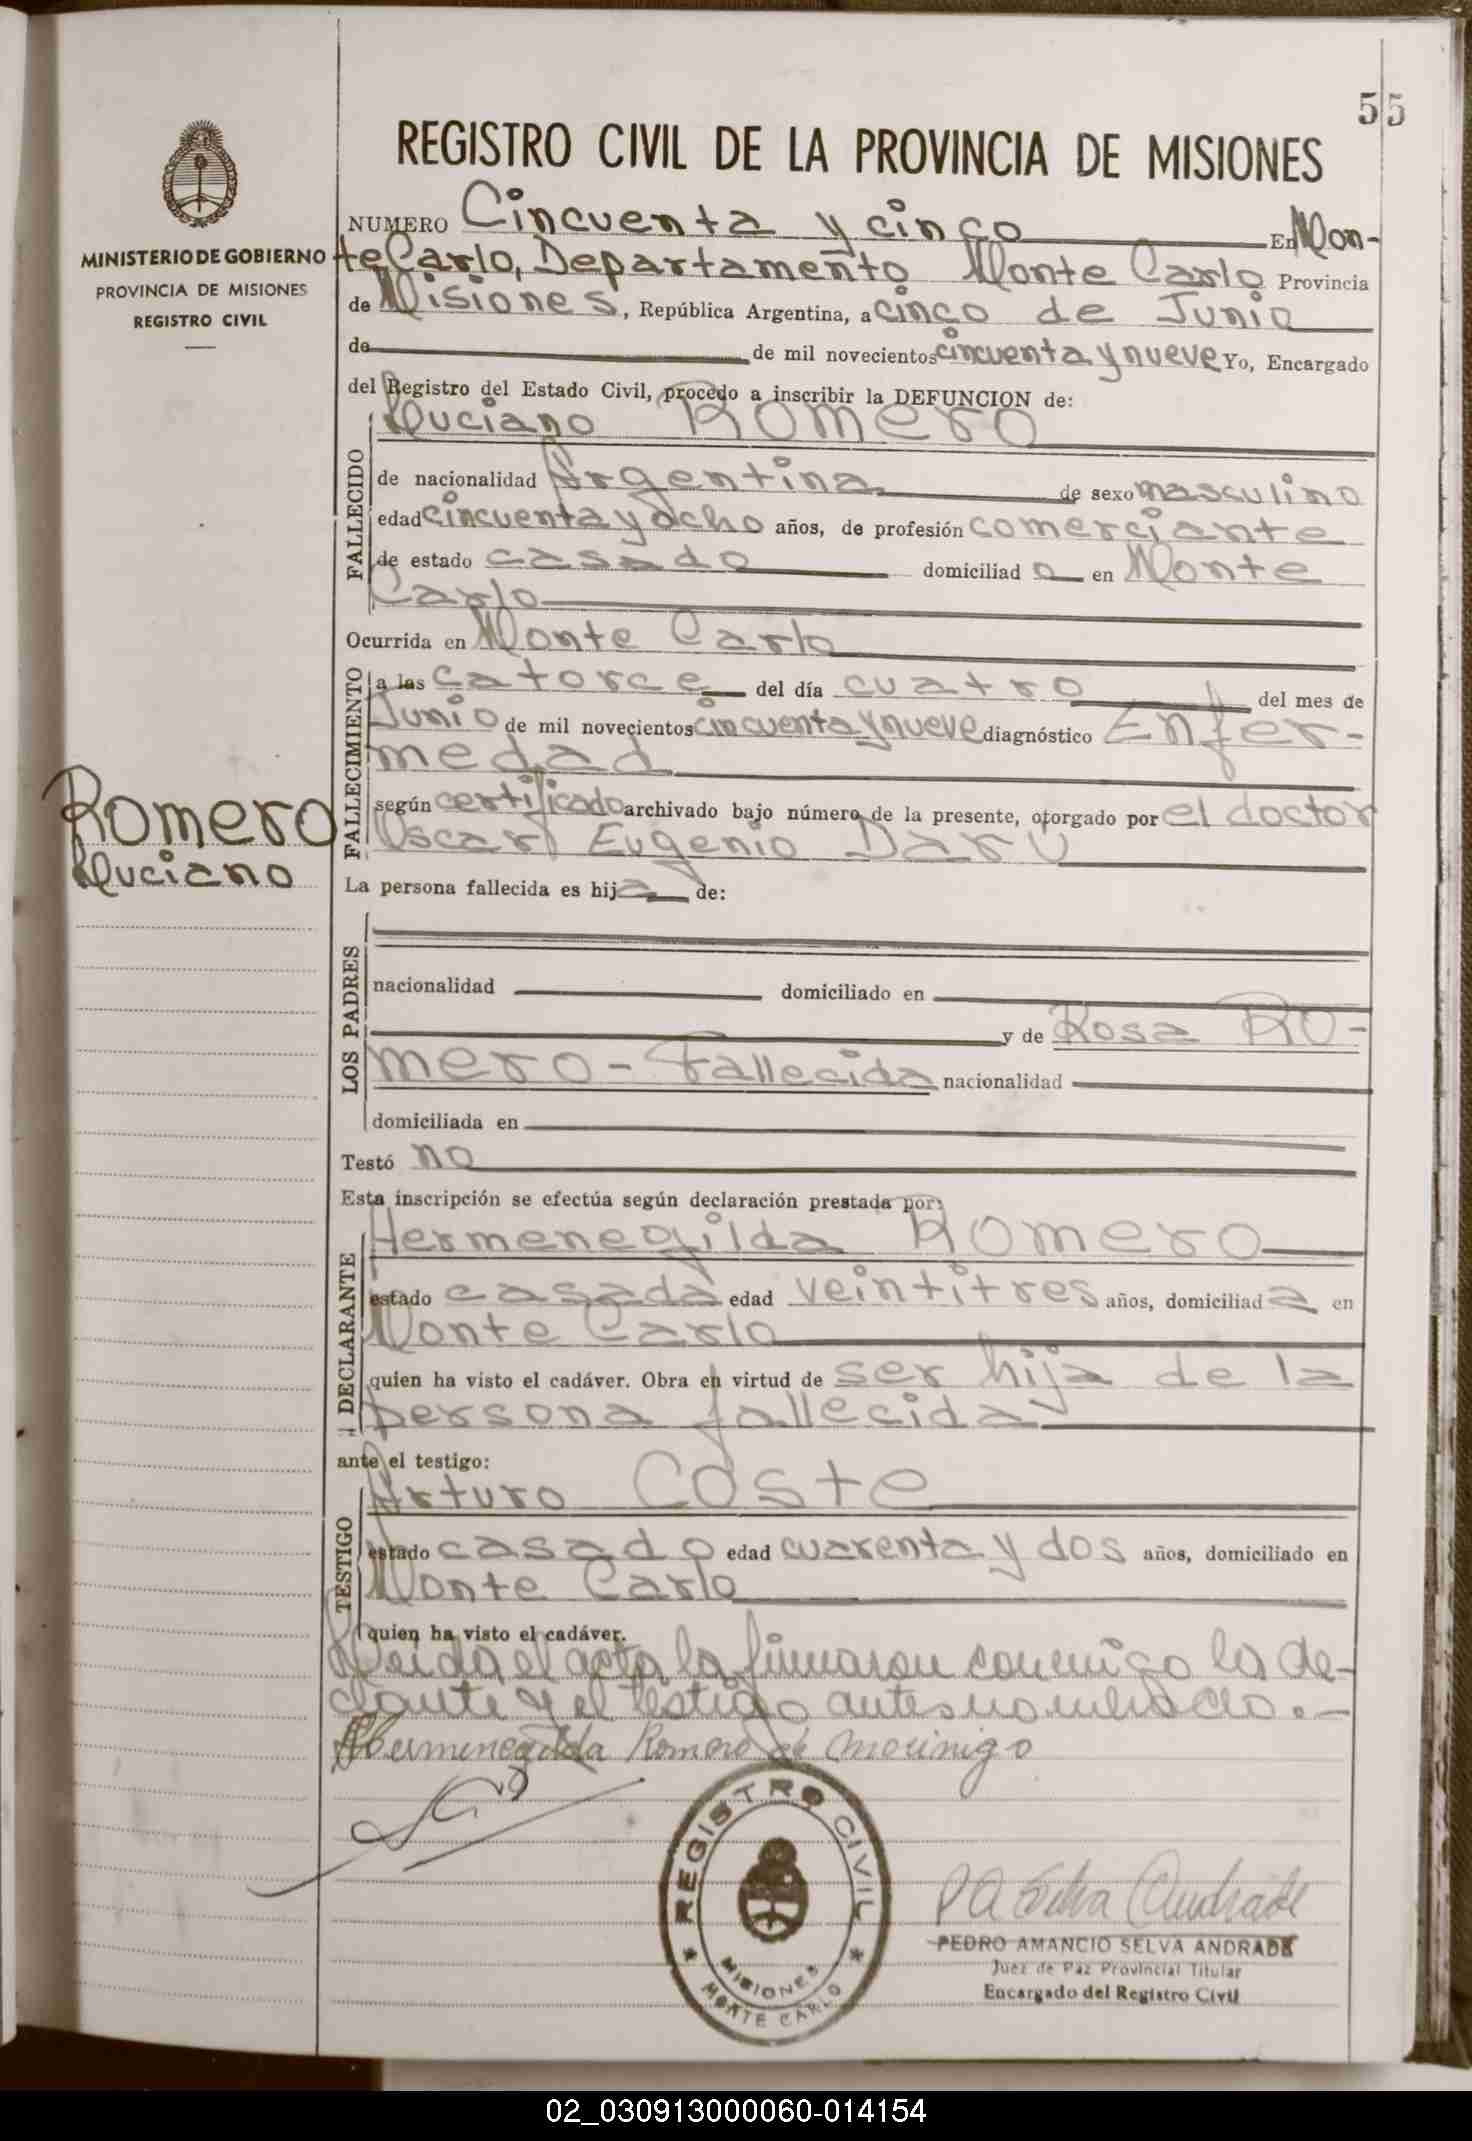 55
REGISTRO CIVIL DE LA PROVINCIA DE MISIONES
MINISTERIO DE GOBIERNO
PROVINCIA DE MISIONES
REGISTRO CIVIL
NUMERO Cincuenta y cinco En Mon-
te Carlo, Departamento Monte Carlo Provincia
de Misiones, República Argentina, a cinco de Junio
de de mil novecientos cincuenta y nueve Yo, Encargado
del Registro del Estado Civil, procedo a inscribir la DEFUNCION de:
FALLECIDO
Luciano Romero
de nacionalidad Argentina de sexo masculino
edad cincuenta y ocho años, de profesión comerciante
de estado casado domiciliad o en Monte
Carlo
Ocurrida en Monte Carlo
FALLECIMIENTO
a las catorce del día cuatro del mes de
Junio de mil novecientos cincuenta y nueve diagnóstico Enfer-
medad
según certificado archivado bajo número de la presente, otorgado por el doctor
Oscar Eugenio Daru
Romero
Luciano
La persona fallecida es hija de:
LOS PADRES
nacionalidad domiciliado en
y de Rosa Ro-
mero - Fallecida nacionalidad
domiciliada en
Testó no
Esta inscripción se efectúa según declaración prestada por:
DECLARANTE
Hermenegilda Romero
estado casada edad veintitres años, domiciliad a en
Monte Carlo
quien ha visto el cadáver. Obra en virtud de ser hija de la
persona fallecida
ante el testigo:
TESTIGO
Arturo Coste
estado casado edad cuarenta y dos años, domiciliado en
Monte Carlo
quien ha visto el cadáver.
Leida el acta la firmaron conmigo la de-
clante y el testigo antes nombrado.-
Hermenegilda Romero de Morinigo
REGISTRO CIVIL
MISIONES
MONTE CARLO
P A Selva Andrade
PEDRO AMANCIO SELVA ANDRADE
Juez de Paz Provincial Titular
Encargado del Registro Civil
02_030913000060-014154